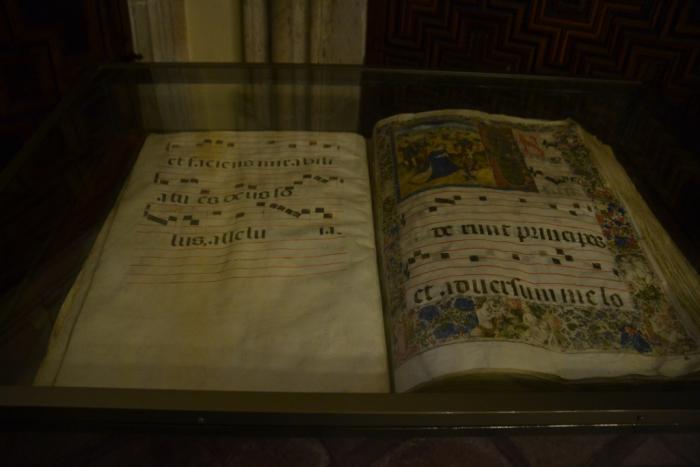 et faciens mirabili
a tu es deus so
lus. allelu
S
de runt principes
et adversum me lo